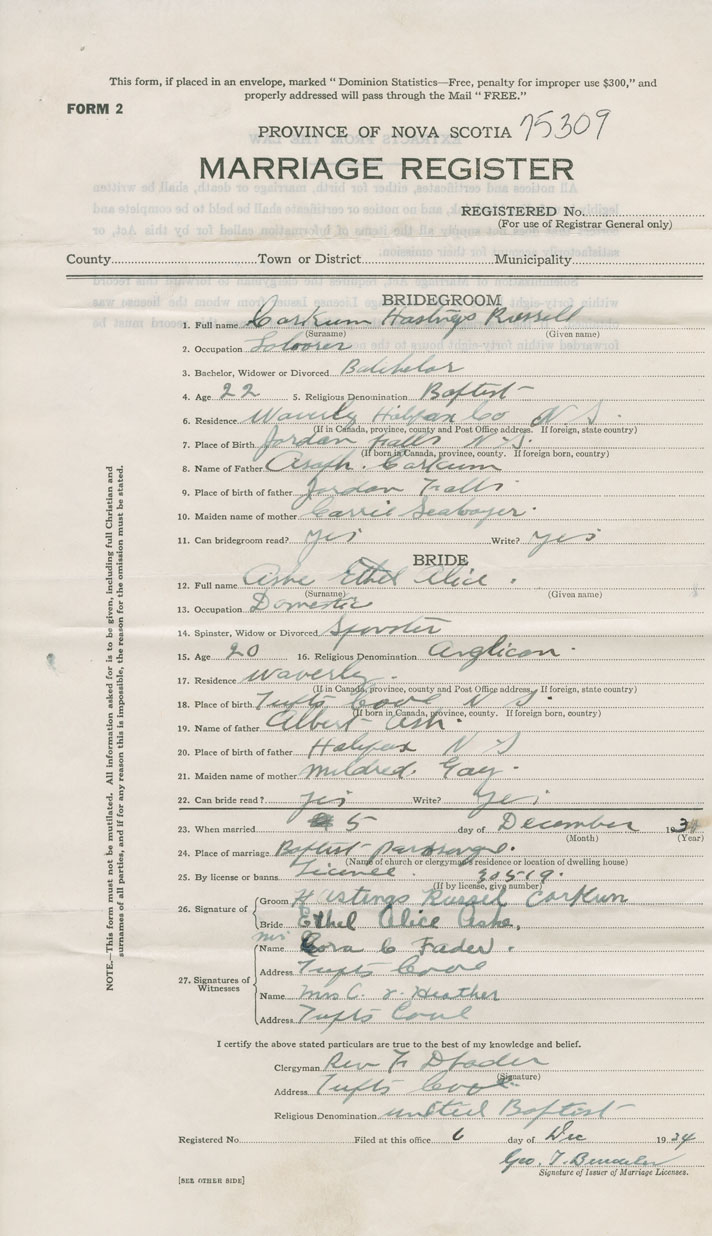 This form, if placed in an envelope, marked " Dominion Statistics—Free, penalty for improper use $300," and
properly addressed will pass through the Mail " FREE."
FORM 2
PROVINCE OF NOVA SCOTIA 75309
MARRIAGE REGISTER
REGISTERED No.
(For use of Registrar General only)
County Town or District Municipality
BRIDEGROOM
1. Full name Corkum Hastings Russell
(Surname) (Given name)
2. Occupation
3. Bachelor, Widower or Divorced Batchelor
4. Age 22 5. Religious Denomination Baptist
6. Residence Waverly Halifax Co N.S.
(If in Canada, province, county and Post Office address. If foreign, state country)
7. Place of Birth Jordan Falls N.S.
(If born in Canada, province, county. If foreign born, country)
8. Name of Father Asaph. Corkum
9. Place of birth of father Jordan Falls
10. Maiden name of mother Carrie
11. Can bridegroom read? yes Write? yes
BRIDE
12. Full name Ashe Ethel Alice.
(Surname) (Given name)
13. Occupation Domestic
14. Spinster, Widow or Divorced Spinster
15. Age 20 16. Religious Denomination Anglican.
17. Residence Waverly.
(If in Canada, province, county and Post Office address. If foreign, state country)
18. Place of birth Tufts Cove N S.
(If born in Canada, province, county. If foreign born, country)
19. Name of father Albert Ash.
20. Place of birth of father Halifax N S
21. Maiden name of mother Mildred. Gay.
22. Can bride read? yes Write? yes
23. When married 5 day of December 193
(Month) (Year)
24. Place of marriage Baptist parsonage.
(Name of church or clergyman's residence or location of dwelling house)
25. By license or banns License 30519.
(If by license, give number)
26. Signature of
Groom Hastings Russel Corkum
Bride Ethel Alice Ashe,
27. Signatures of Witnesses
Mrs
Name Cora C Fader.
Address Tufts Cove
Name Mrs C. Heather
Address Tufts Cove
I certify the above stated particulars are true to the best of my knowledge and belief.
Clergyman Rev F D Fader
(Signature)
Address Tufts Cove
Religious Denomination United Baptist
Registered No. Filed at this office 6 day of Dec 1934
Geo. T.
Signature of Issuer of Marriage Licenses.
[SEE OTHER SIDE]
NOTE.—This form must not be mutilated. All information asked for is to be given, including full Christian and
surnames of all parties, and if for any reason this is impossible, the reason for the omission must be stated.